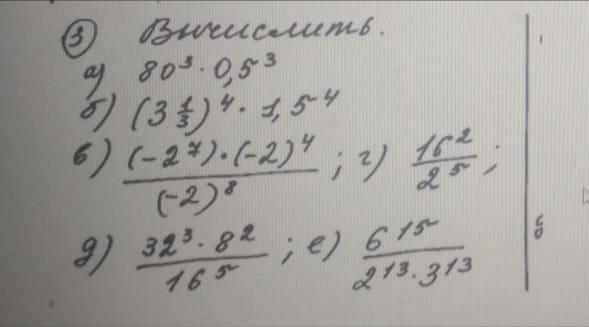 ③ Вычислить.
а) 80³ · 0,5³
б) (3 1/3)⁴ · 1,5⁴
в) (-2⁷) · (-2)⁴ / (-2)⁸ ; г) 16² / 2⁵ ;
д) 32³ · 8² / 16⁵ ; е) 6¹⁵ / 2¹³ · 3¹³